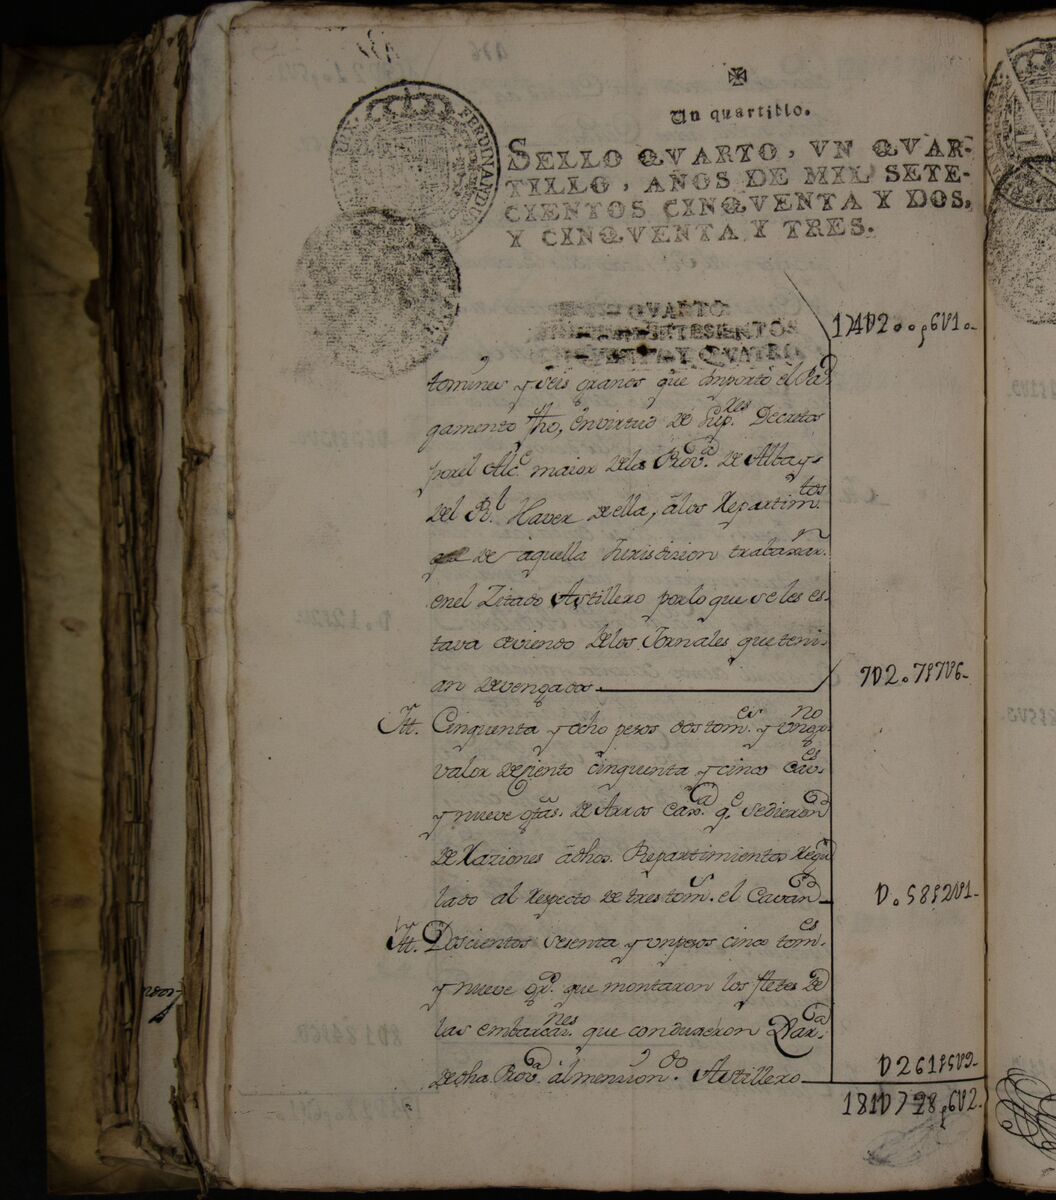 Un quartillo.
SELLO QVARTO, VN QVAR-
TILLO, AÑOS DE MIL SETE-
CIENTOS CINQVENTA Y DOS,
Y CINQVENTA Y TRES.
FERDINANDUS
QVARTO
SETESIENTOS
Y QVATRO
174U200p6U10-
tomines y seis granos que importó el Pa-
gamento fho, envirtud de Supres. Decretos
por el Alce. maior dela Prova. de Albay
del Rl. Haver de ella, álos Repartimtos.
de aquella Jurisdizion trabaxarn.
enel Zitado Astillero por lo que se les es-
tava deviendo delos Jornales que teni-
an devengados.
7U207p7U6-
Ytt. Cinquenta y ocho pesos dos tomes. y un gno.
valor de Ciento cinquenta y cinco Cavs.
y nueve gtas. de Arros Caxa. qe. se dieron
de Raziones ádhos. Repartimientos Regu
lado al respecto de tres toms. el Cavan
U.58p2U1-
Ytt. Doscientos sesenta y un pesos cinco tomes.
y nueve gs. que montaron los fletes de
las embarcanes. que conduxeron
de dha Prova. al mensionado. Astillero
U261p5U9-
181U728p6U2.